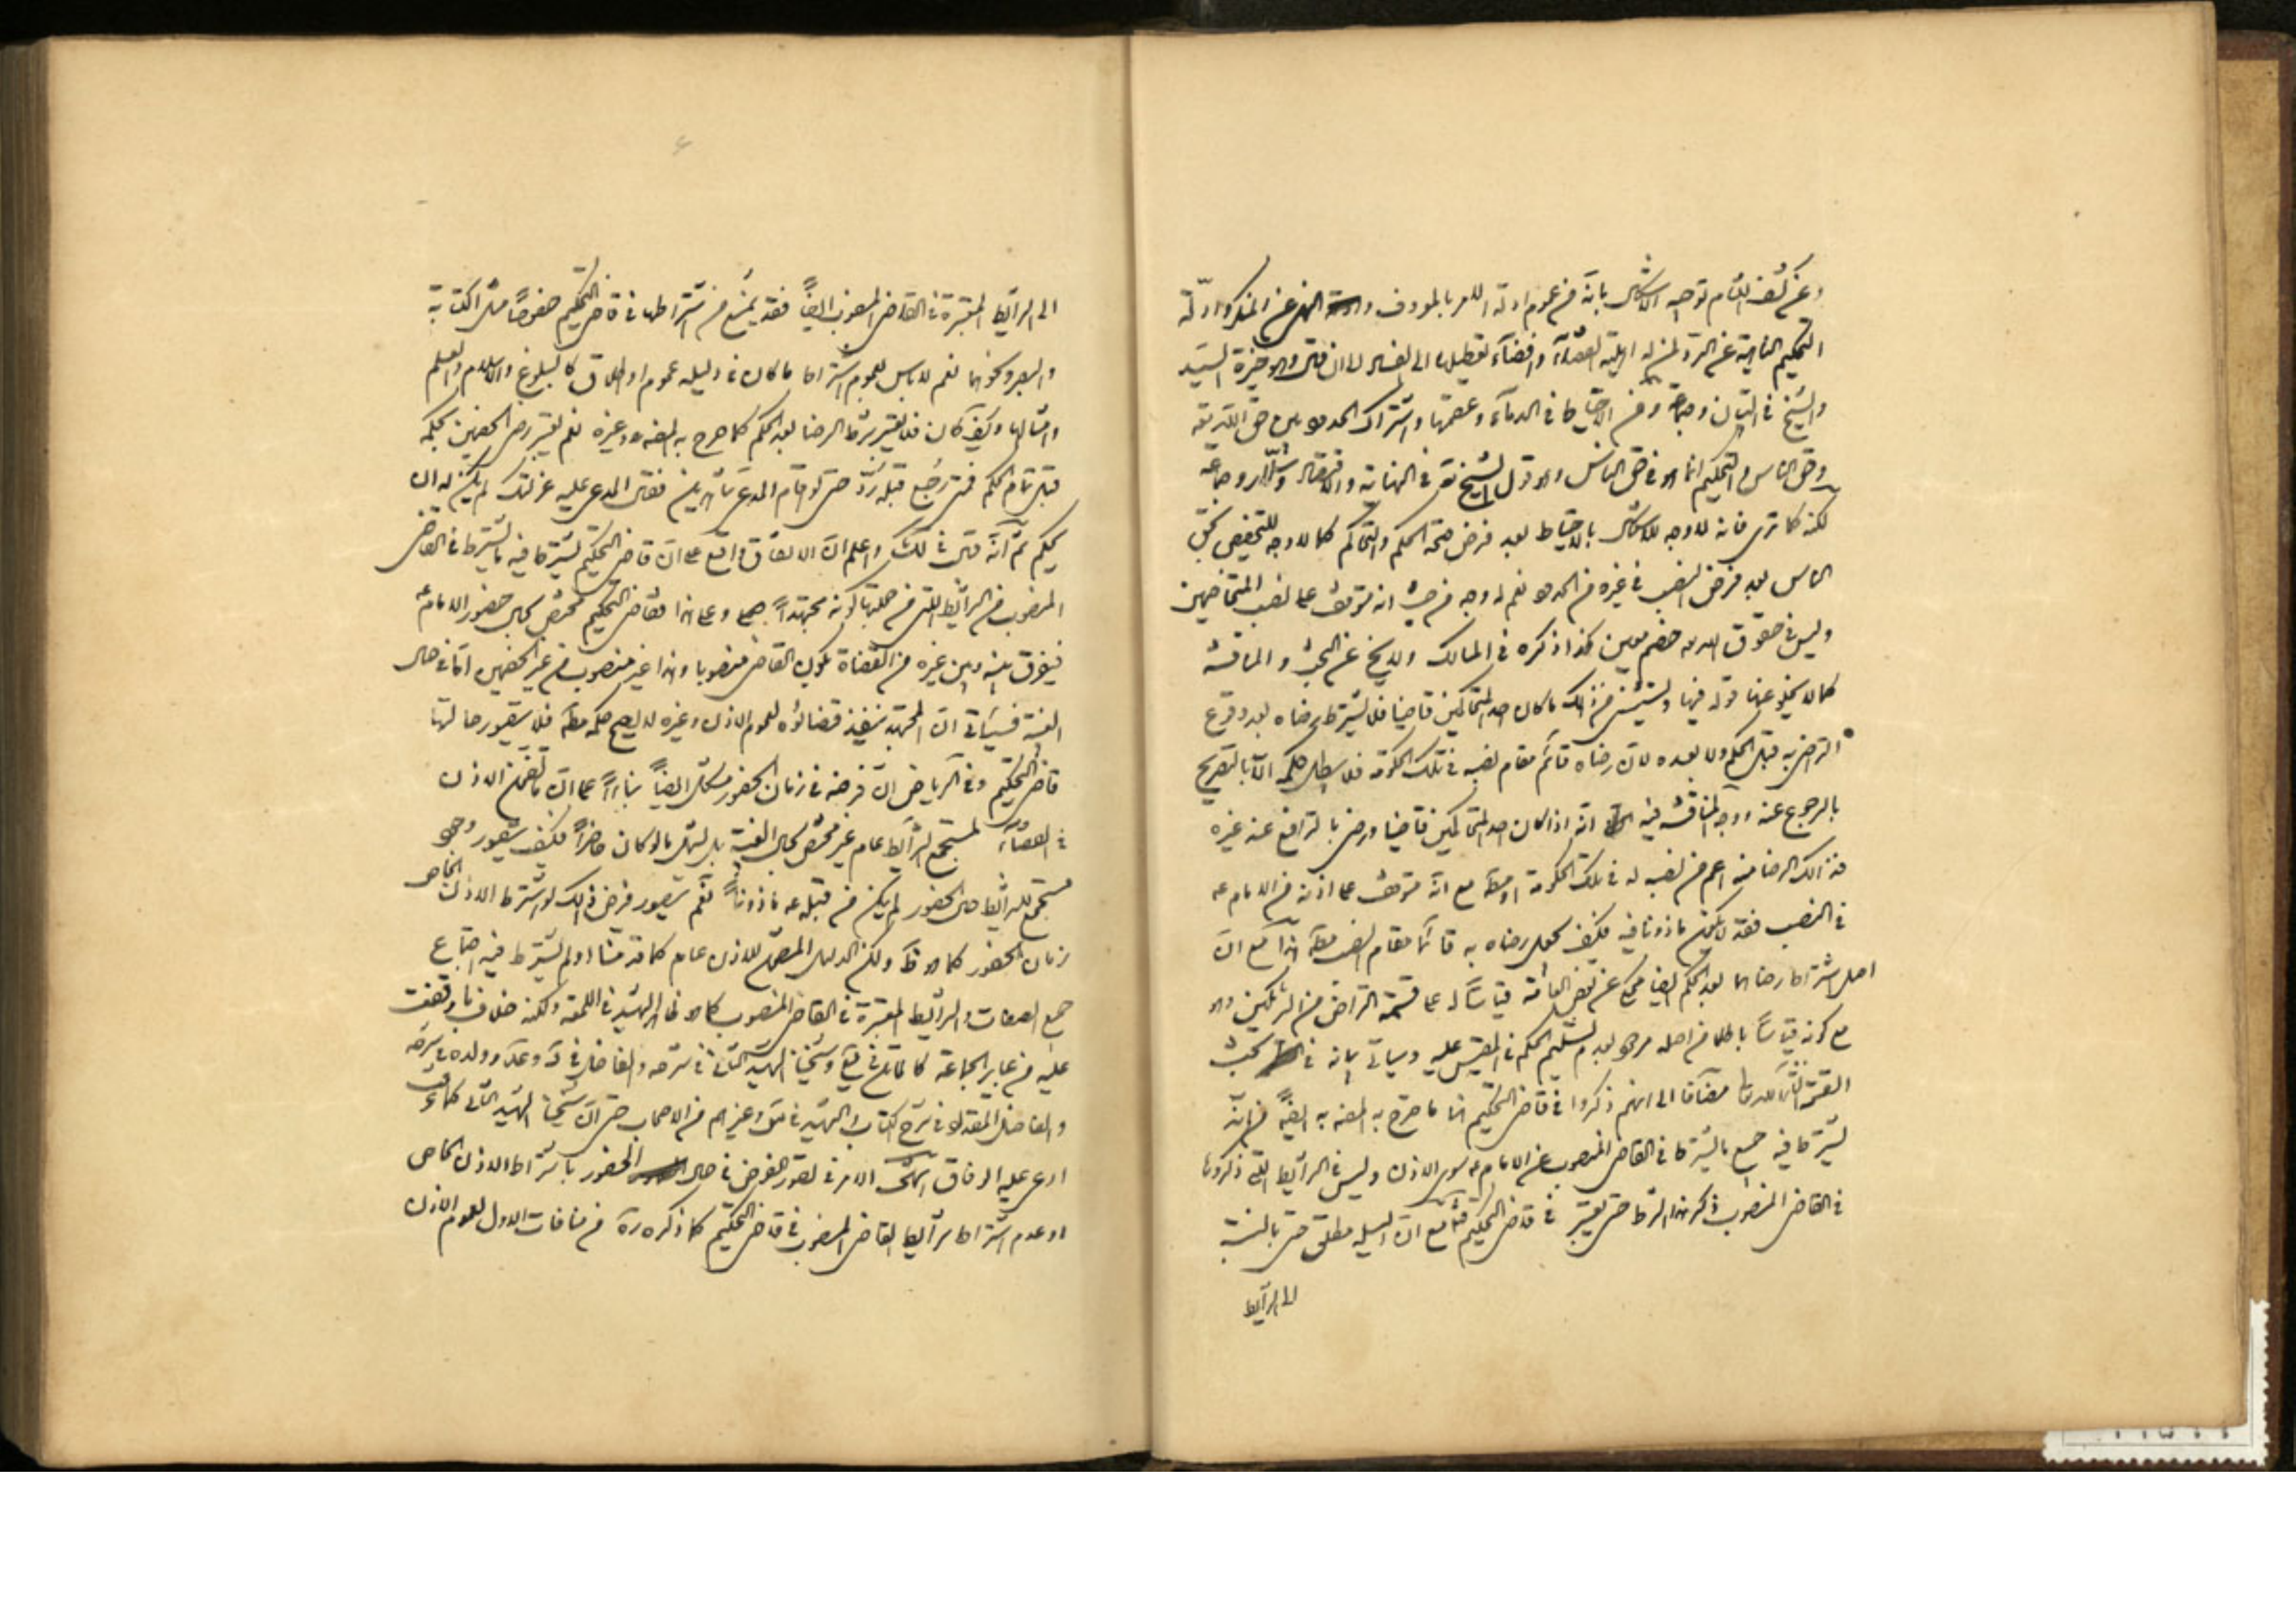 وعن كشف اللثام توجيه الاشكال بانه من عموم ادلة الامر بالمعروف والنهى عن المنكر وادلة
التحكيم الناهية عن الرد لمن له اهلية القضاء وافضاء تعطيلها الى الفساد الى ان قال وهو خيرة السيد
والشيخ فى التبيان وجماعة ومن الاحتياط فى الدماء وعصمتها واشتراك الحدود بين حق الله تعالى
وحق الناس والتحكيم انما هو فى حق الناس وهو قول الشيخ فى النهاية والاقتصاد وسلار وجماعة
لكنه كما ترى فانه لا وجه للاشكال بالاحتياط بعد فرض صحة الحكم والتحاكم كما لا وجه للتخصيص بحق
الناس بعد فرض النصب فى غيره من الحدود نعم له وجه من حيث انه متوقف على نصب المتخاصمين
وليس فى حقوق الله خصم معين كذا ذكره فى المسالك ولا يخ عن البحث والمناقشة
كما لا يخلو عنها قوله فيها ويستثنى من ذلك ما كان احد المتحاكمين قاضيا فلا يشترط رضاه بعد وقوع
التراضى به قبل الحكم ولا بعده لان رضاه قائم مقام نصبه فى تلك الحكومة فلا يبطل حكمه الا بالتصريح
بالرجوع عنه ووجه المناقشة فيه انه اذا كان احد المتحاكمين قاضيا ورضى بالترافع عند غيره
فذلك الرضا منه اعم من نصبه له فى تلك الحكومة او مط مع انه متوقف على اذنه من الامام ع
فى النصب فقد لا يكون ماذونا فيه فكيف يجعل رضاه به قائما مقام النصب مط هذا مع ان
اصل اشتراط رضاهما بعد الحكم ايضا محكى عن بعض العامة قياسا له على قسمة التراضى من الشريكين وهو
مع كونه قياسا باطلا من اصله مرجو بعدم تسليم الحكم فى المقيس عليه وسياتى بيانه فى بحث
القسمة انشاء الله تعالى مضافا الى انهم ذكروا فى قاضى التحكيم انما ما صرح به المص به ايضا من انه
يشترط فيه جميع ما يشترط فى القاضى المنصوب عن الامام ع سوى الاذن وليس فى الشرائط التى ذكروها
فى القاضى المنصوب ذكر هذا الشرط حتى يعتبر فى قاضى التحكيم مع ان الدليل مطلق حتى بالنسبة
الى الشرائط
الى الشرائط المعتبرة فى القاضى المنصوب ايضا فقد يمنع من اشتراطها فى قاضى التحكيم خصوصا مثل الكتابة
والبصر ونحوهما نعم لا باس بعموم اشتراط ما كان فى دليله عموم او اطلاق كالبلوغ والاسلام والعلم
وامثالها وكيف كان فلا يعتبر شرط الرضا بعد الحكم كما صرح به المص وغيره نعم يعتبر رضى الخصمين بحكمه
قبل تمام الحكم فمتى رجع قبله رد حتى لو اقام المدعى شاهدين فقال المدعى عليه عزلتك لم يكن له ان
يحكم ثم انه قال فى لك واعلم ان الاتفاق واقع على ان قاضى التحكيم يشترط فيه ما يشترط فى القاضى
المنصوب من الشرائط التى من جملتها كونه مجتهدا وعلى هذا فقاضى التحكيم مختص بحال حضور الامام ع
فيفرق بينه وبين غيره من القضاة بكون القاضى منصوبا وهذا غير منصوب من غير الخصمين اما فى حال
الغيبة فسياتى ان المجتهد ينفذ قضاؤه لعموم الاذن وغيره لا يصح حكمه مط فلا يتصور حالتها
قاضى التحكيم وفى الرياض ان فرضه فى زمان الحضور مشكل ايضا بناءا على ان ما تضمن الاذن
فى القضاء لمستجمع الشرائط عام غير مختص بحال الغيبة بل يشمل ما لو كان حاضرا فكيف يتصور وجود
مستجمع للشرائط حال الحضور لم يكن من قبله ع ماذونا نعم يتصور فرض ذلك لو اشترط الاذن الخاص
زمان الحضور كما هو ظ ولكن الدليل المتضمن للاذن عام كما قدمنا او لم يشترط فيه اجتماع
جميع الصفات والشرائط المعتبرة فى القاضى المنصوب كما هو ظاهر الشهيد فى اللمعة ولكنه خلاف ما وقفت
عليه من عباير الجماعة كالماتن فى يع وشيخنا الشهيد الثانى فى شرحه والفاضل فى د و عد وولده فى شرحه
والفاضل المقداد فى شرح الكتاب والشهيد فى س وغيرهم من الاصحاب حتى ان شيخنا الشهيد الثانى كما عرفت
ادعى عليه الوفاق الامر فى تصور الفرض فى حال الحضور باشتراط الاذن الخاص
او عدم اشتراط شرائط القاضى المنصوب فى قاضى التحكيم كما ذكره ره من منافات الاول لعموم الاذن